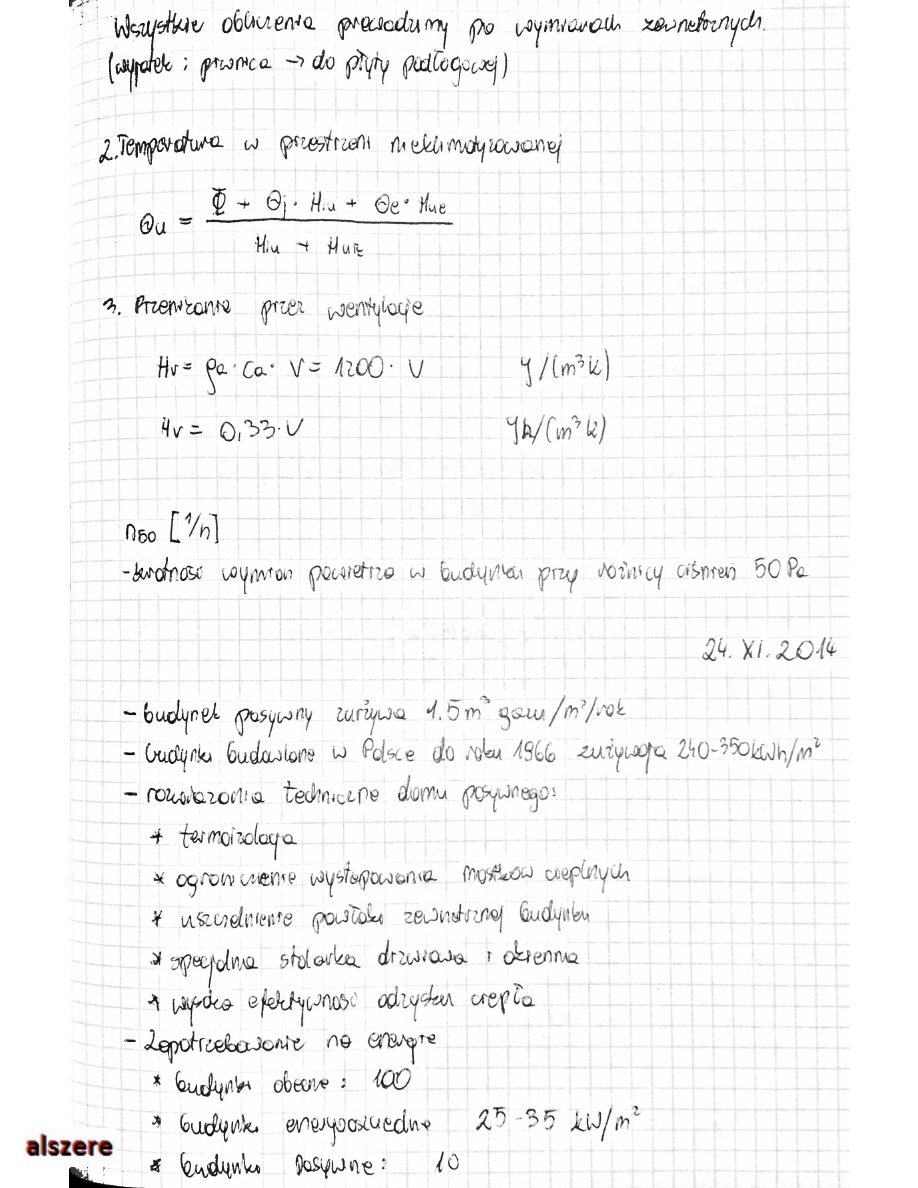 Wszystkie obliczenia prowadzimy po wymiarach zewnetrznych.
(wyjątek : piwnica → do płyty podłogowej)
2. Temperatura w przestrzeni nieklimatyzowanej
Θu = (Φ + Θj · Hiu + Θe · Hue) / (Hiu + Hue)
3. Przenikanie przez wentylacje
Hv = ρa · Ca · V = 1200 · V J/(m³k)
Hv = 0,33 · V
n50 [1/h]
- krotność wymian powietrza w budynku przy różnicy ciśnień 50 Pa
24. XI. 2014
- budynek pasywny zużywa 1.5m³ gazu/m²/rok
- budynki budowlane w Polsce do roku 1966 zużywają 240-350kWh/m²
- rozwiązania techniczne domu pasywnego:
* termoizolacja
* ograniczenie występowania mostków cieplnych
* uszczelnienie powłoki zewnetrznej budynku
* specjalna stolarka drzwiowa i okienna
* wysoka efektywność odzysku ciepła
- Zapotrzebowanie na energie
* budynki obecne : 100
* budynki energooszczedne 25-35 kW/m²
* budynki pasywne : 10
alszere